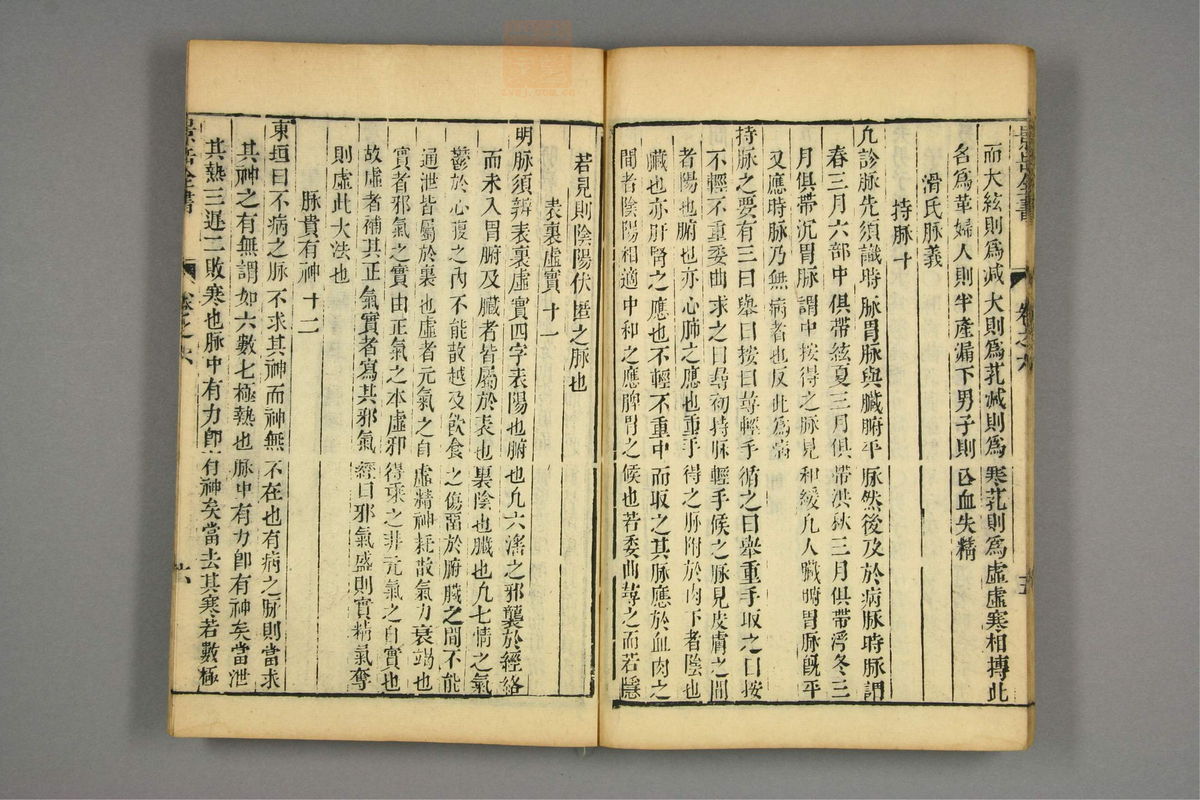 而大絃則爲減大則爲芤減則爲寒芤則爲虛虛寒相搏此
名爲革婦人則半產漏下男子則亾血失精
滑氏脉義
持脉十
凢診脉先須識時脉胃脉與臟腑平脉然後及於病脉時脉謂
春三月六部中俱帶絃夏三月俱帶洪秋三月俱帶浮冬三
月俱帶沉胃脉謂中按得之脉見和緩凢人臟腑胃脉旣平
又應時脉乃無病者也反此爲病
持脉之要有三曰舉曰按曰尋輕手循之曰舉重手取之曰按
不輕不重委曲求之曰尋初持脉輕手候之脉見皮膚之間
者陽也腑也亦心肺之應也重手得之脉附於肉下者陰也
臟也亦肝腎之應也不輕不重中而取之其脉應於血肉之
間者陰陽相適中和之應脾胃之候也若委曲尋之而若隱
景岳全書
卷之六
五
若見則陰陽伏匿之脉也
表裏虛實十一
明脉須辨表裏虛實四字表陽也腑也凢六滛之邪襲於經絡
而未入胃腑及臟者皆屬於表也裏陰也臟也凢七情之氣
鬱於心腹之內不能散越及飲食之傷畱於腑臟之間不能
通泄皆屬於裏也虛者元氣之自虛精神耗散氣力衰竭也
實者邪氣之實由正氣之本虛邪得乘之非元氣之自實也
故虛者補其正氣實者寫其邪氣經曰邪氣盛則實精氣奪
則虛此大法也
脉貴有神十二
東垣曰不病之脉不求其神而神無不在也有病之脉則當求
其神之有無謂如六數七極熱也脉中有力卽有神矣當泄
其熱三遲二敗寒也脉中有力卽有神矣當去其寒若數極
景岳全書
卷之六
六